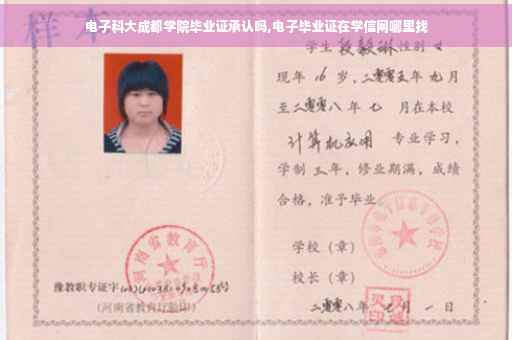 电子科大成都学院毕业证承认吗,电子毕业证在学信网哪里找
样本
学生 段毅琳 性别 女
现年 16 岁,二零零五年 九月
至二零零八年 七 月在本校
计算机应用 专业学习,
学制 三 年,修业期满,成绩
合格,准予毕业
学校(章)
校长(章)
二零零八年 七 月 一 日
河南省教育厅
豫教职专证字
(河南省教育厅验印)